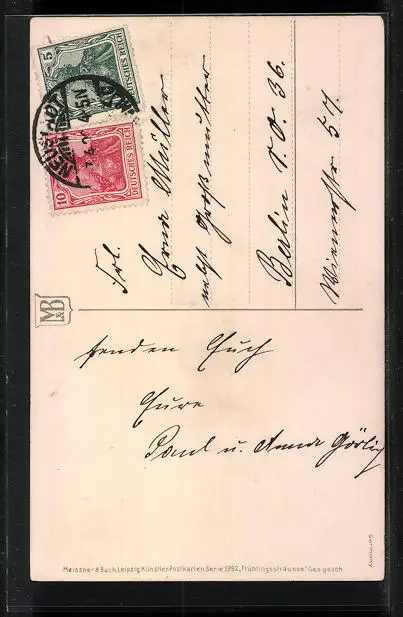 5
DEUTSCHES REICH
10
DEUTSCHES REICH
Frl.
Erna Müller
nebst Großmutter
Berlin S.O. 36.
Wienerstr. 57.
M&B
senden Euch
Eure
Paul u.
Meissner & Buch, Leipzig Künstler-Postkarten Serie 1992, "Frühlingssträusse" Ges. gesch.
Germany